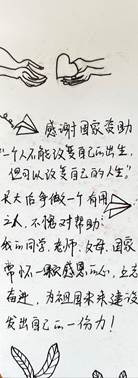 感谢国家资助
"一个人不能改变自己的出生，
但可以改变自己的人生"
长大后争做一个有用
之人，不愧对帮助
我的同学、老师、父母、国家
常怀一颗感恩的心，立志
奋进，为祖国未来建设
发出自己的一份力！